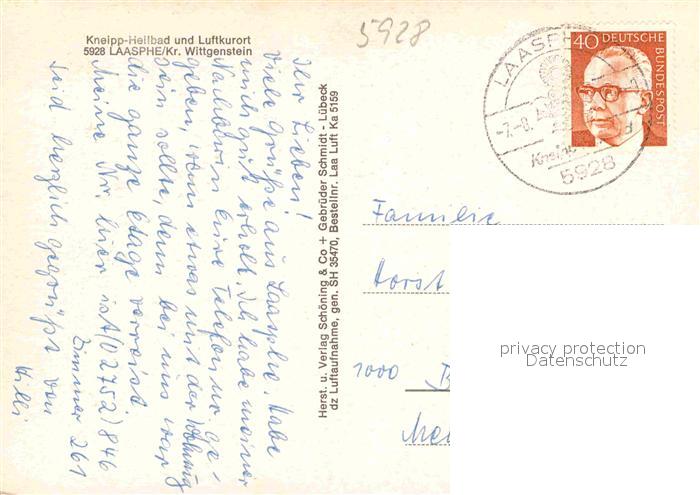 Kneipp-Heilbad und Luftkurort
5928 LAASPHE/Kr. Wittgenstein
5928
LAASPHE
-7.-8.
Kneipp
5928
40 DEUTSCHE
BUNDESPOST
Ihr Lieben!
Viele Grüße aus Laasphe. Habe
mich gut erholt. Ich habe meiner
Nachbarin Eure Telefonnr. ge-
geben, wenn etwas mit der Wohnung
sein sollte, denn bei uns war
die ganze Etage verreist.
Meine Nr. hier ist (02752) 846
Zimmer 261
Seid herzlich gegrüßt von
Willi
Herst. u. Verlag Schöning & Co + Gebrüder Schmidt - Lübeck
dz Luftaufnahme, gen. SH 35470, Bestellnr. Laa Luft Ka 5159
Familie
Horst
1000 B
privacy protection
Datenschutz